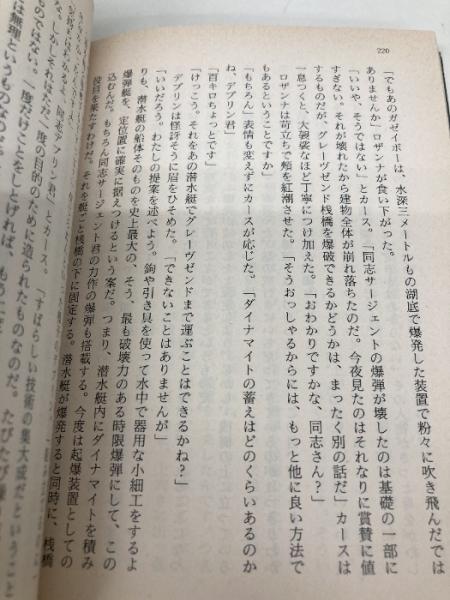 220
「でもあのガゼイボーは、水深三メートルもの湖底で爆発した装置で粉々に吹き飛んだでは
ありませんか」ロザンナが食い下がった。
「いいや、そうではない」とカース。「同志サージェントの爆弾が壊したのは基礎の一部に
すぎない。それが壊れたから建物全体が崩れ落ちたのだ。今夜見たのはそれなりに賞賛に値
するものだが、グレーヴゼンド桟橋を爆破できるかどうかは、まったく別の話だ」カースは
一息つくと、大袈裟なほど丁寧につけ加えた。「おわかりですかな、同志さん?」
ロザンナは苛立ちで頬を紅潮させた。「そうおっしゃるからには、もっと他に良い方法で
もあるということですか」
「もちろん」表情も変えずにカースが応じた。「ダイナマイトの蓄えはどのくらいあるのか
ね、デブリン君」
「百キロちょっとです」
「けっこう。それをあの潜水艇でグレーヴゼンドまで運ぶことはできるかね?」
デブリンは怪訝そうに眉をひそめた。「できないことはありませんが」
「いいだろう。わたしの提案を述べよう。鉤や引き具を使って水中で器用な小細工をするよ
りも、潜水艇の船体そのものを史上最大の、そう、最も破壊力のある時限爆弾にして、この
爆弾艇を、定位置に確実に据えつけるという案だ。つまり、潜水艇内にダイナマイトを積み
込むんだ。もちろん同志サージェント君の力作の爆弾も搭載する。今度は起爆装置としての
役目を果たすわけだ。それを艇ごと桟橋の下に固定する。潜水艇が爆発すると同時に、桟橋